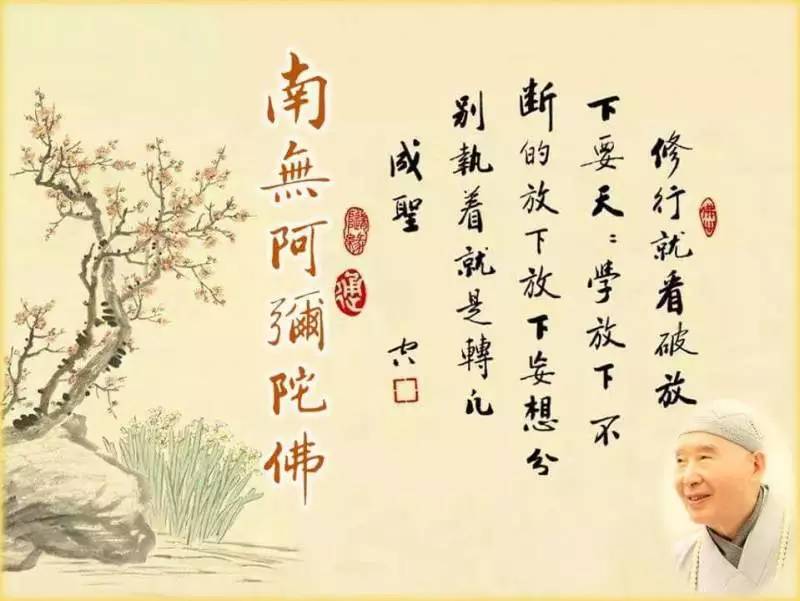 修行就看破放
下要天：學放下不
断的放下放下妄想分
别執着就是轉凡
成聖
南無阿彌陀佛